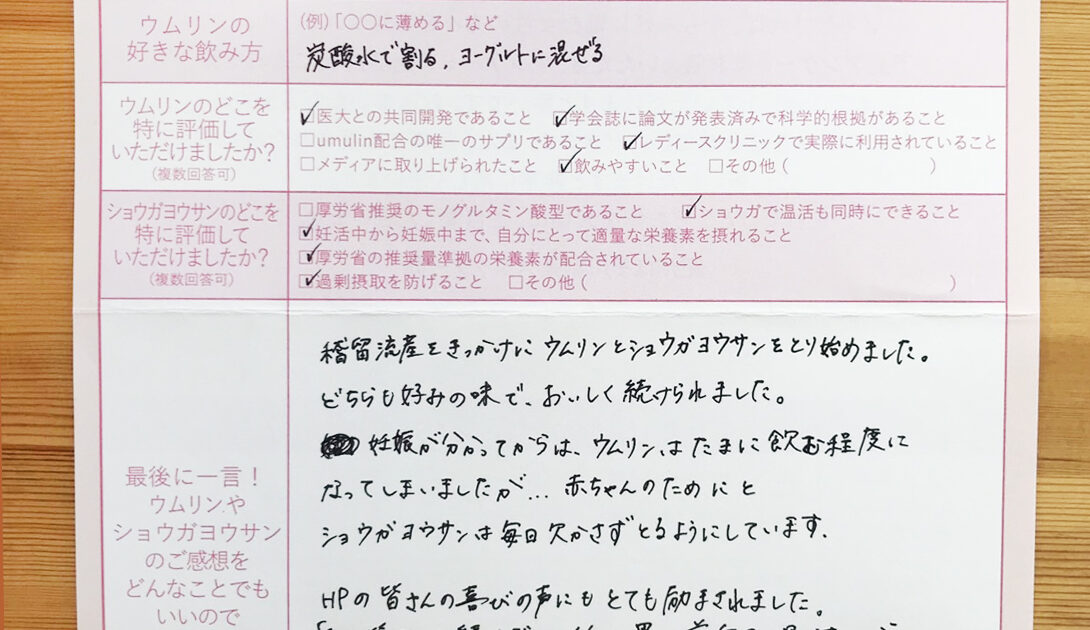 ウムリンの
好きな飲み方
(例)「〇〇に薄める」など
炭酸水で割る, ヨーグルトに混ぜる
ウムリンのどこを
特に評価して
いただけましたか?
(複数回答可)
☑医大との共同開発であること ☑学会誌に論文が発表済みで科学的根拠があること
□umulin配合の唯一のサプリであること ☑レディースクリニックで実際に利用されていること
□メディアに取り上げられたこと ☑飲みやすいこと □その他( )
ショウガヨウサンのどこを
特に評価して
いただけましたか?
(複数回答可)
□厚労省推奨のモノグルタミン酸型であること ☑ショウガで温活も同時にできること
☑妊活中から妊娠中まで、自分にとって適量な栄養素を摂れること
☑厚労省の推奨量準拠の栄養素が配合されていること
☑過剰摂取を防げること □その他( )
最後に一言!
ウムリンや
ショウガヨウサン
のご感想を
どんなことでも
いいので
稽留流産をきっかけに ウムリンとショウガヨウサンをとり始めました。
どちらも好みの味で、おいしく続けられました。
妊娠が分かってからは、ウムリンはたまに飲む程度に
なってしまいましたが... 赤ちゃんのためにと
ショウガヨウサンは毎日欠かさずとるようにしています.
HPの皆さんの喜びの声にもとても励まされました。